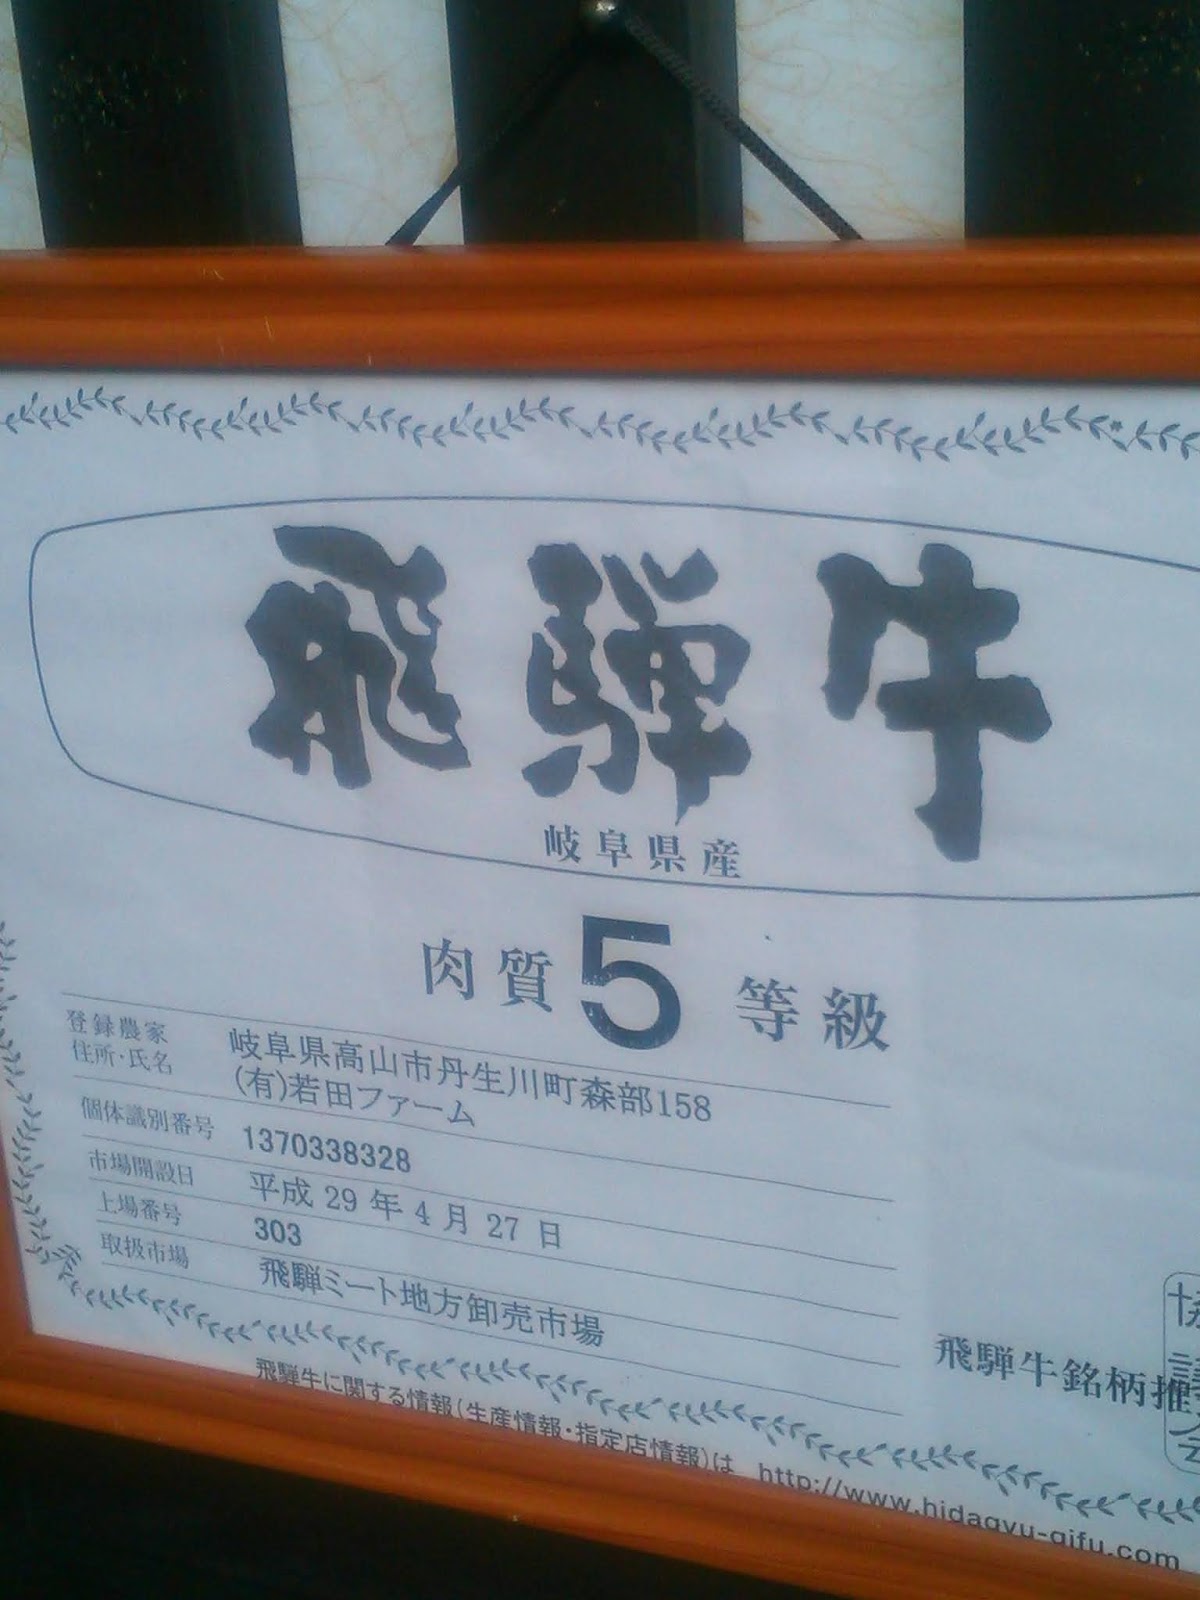 飛騨牛
岐阜県産
肉質5等級
登録農家
住所・氏名
岐阜県高山市丹生川町森部158
(有)若田ファーム
個体識別番号 1370338328
市場開設日 平成 29 年 4 月 27 日
上場番号 303
取扱市場 飛騨ミート地方卸売市場
飛騨牛銘柄推
飛騨牛に関する情報(生産情報・指定店情報)は http://www.hidagyu-gifu.com